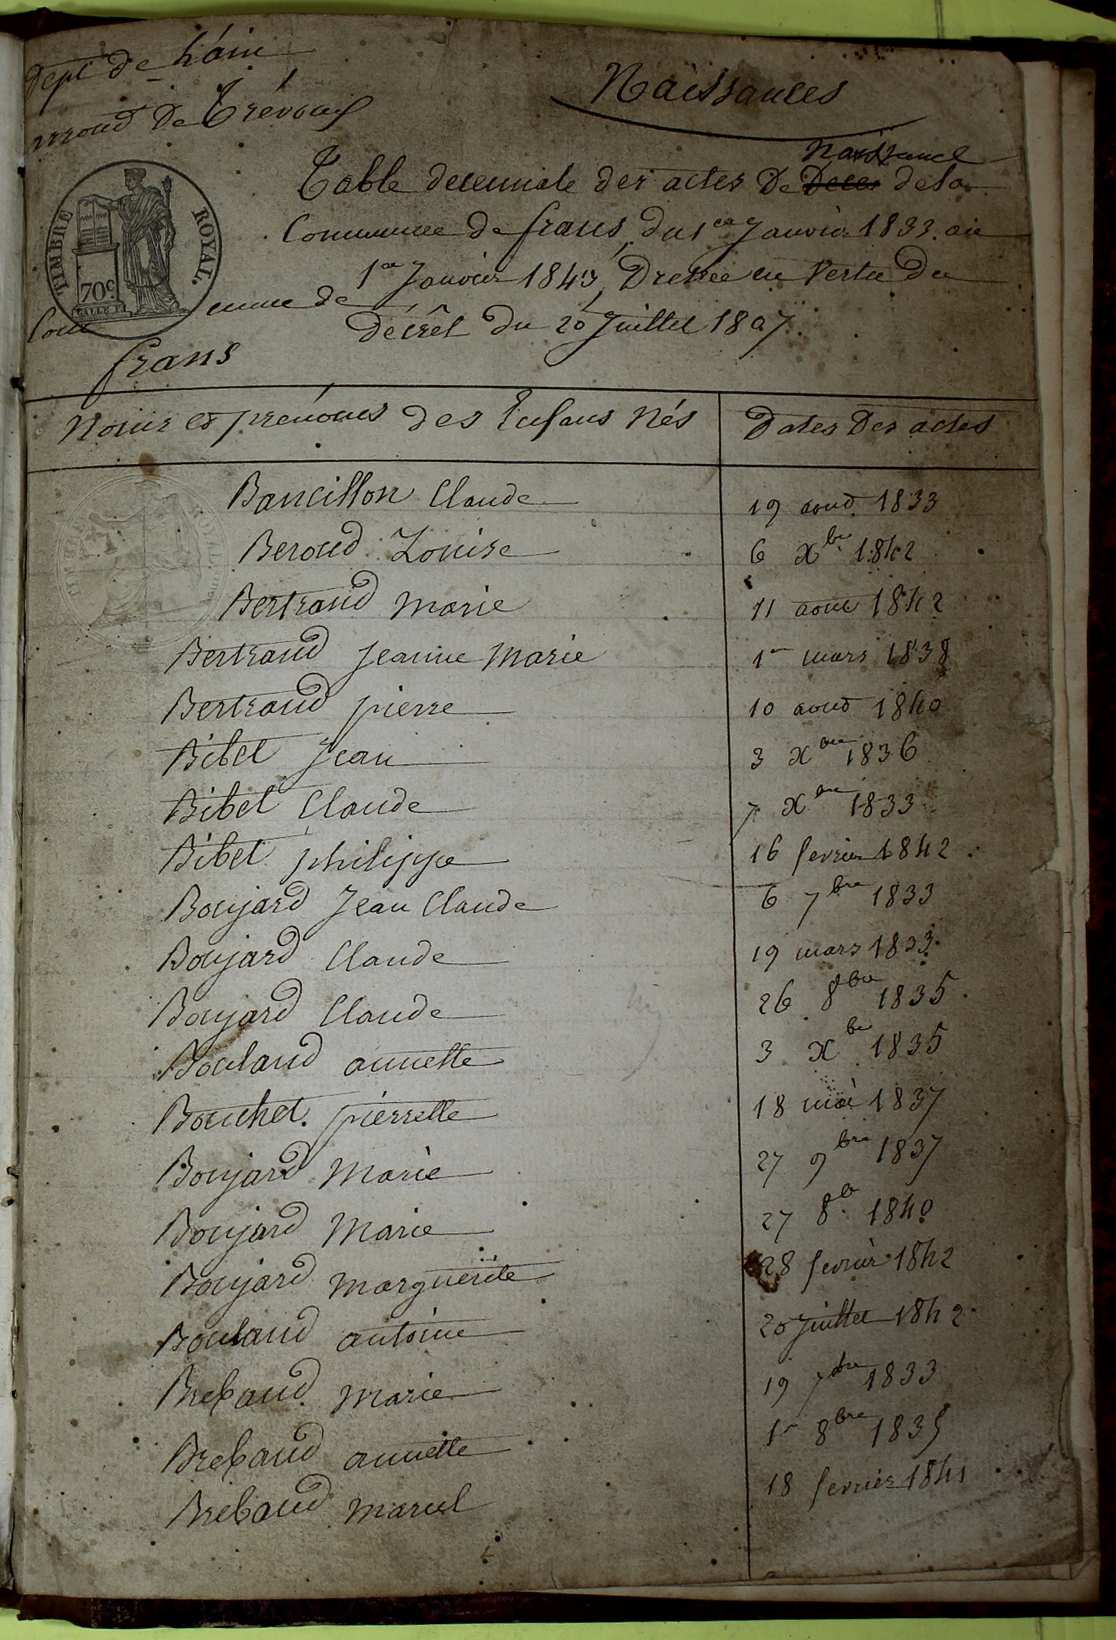 Dept de L'ain
arrond De Trévoux
Naissances
TIMBRE ROYAL.
70c
Naissance
Table decennale des actes De Deces dela
Commune de frans, du 1er Janvier 1833. au
1er Janvier 1843, Dressée en Vertu Du
Décrêt Du 20 Juillet 1807.
Commune de
frans
Noms et prénoms des Enfans Nés
Dates Des actes
Bancillon Claude 19 aout 1833
Beroud Louise 6 Xbre 1842
Bertrand Marie 11 aout 1842
Bertrand Jeanne Marie 1er mars 1838
Bertrand pierre 10 aout 1840
Bibet Jean 3 Xbre 1836
Bibet Claude 7 Xbre 1833
Bibet philippe 16 fevrier 1842
Boujard Jean Claude 6 7bre 1833
Boujard Claude 19 mars 1833
Boujard Claude 26 8bre 1835
Bouland annette 3 Xbre 1835
Bouchet pierrette 18 mai 1837
Boujard Marie 27 9bre 1837
Boujard Marie 27 8b 1840
Boujard Marguerite 28 fevrier 1842
Bouland antoine 20 Juillet 1842
Brebaud Marie 19 7bre 1833
Brebaud annette 1er 8bre 1835
Brebaud Marcel 18 fevrier 1841